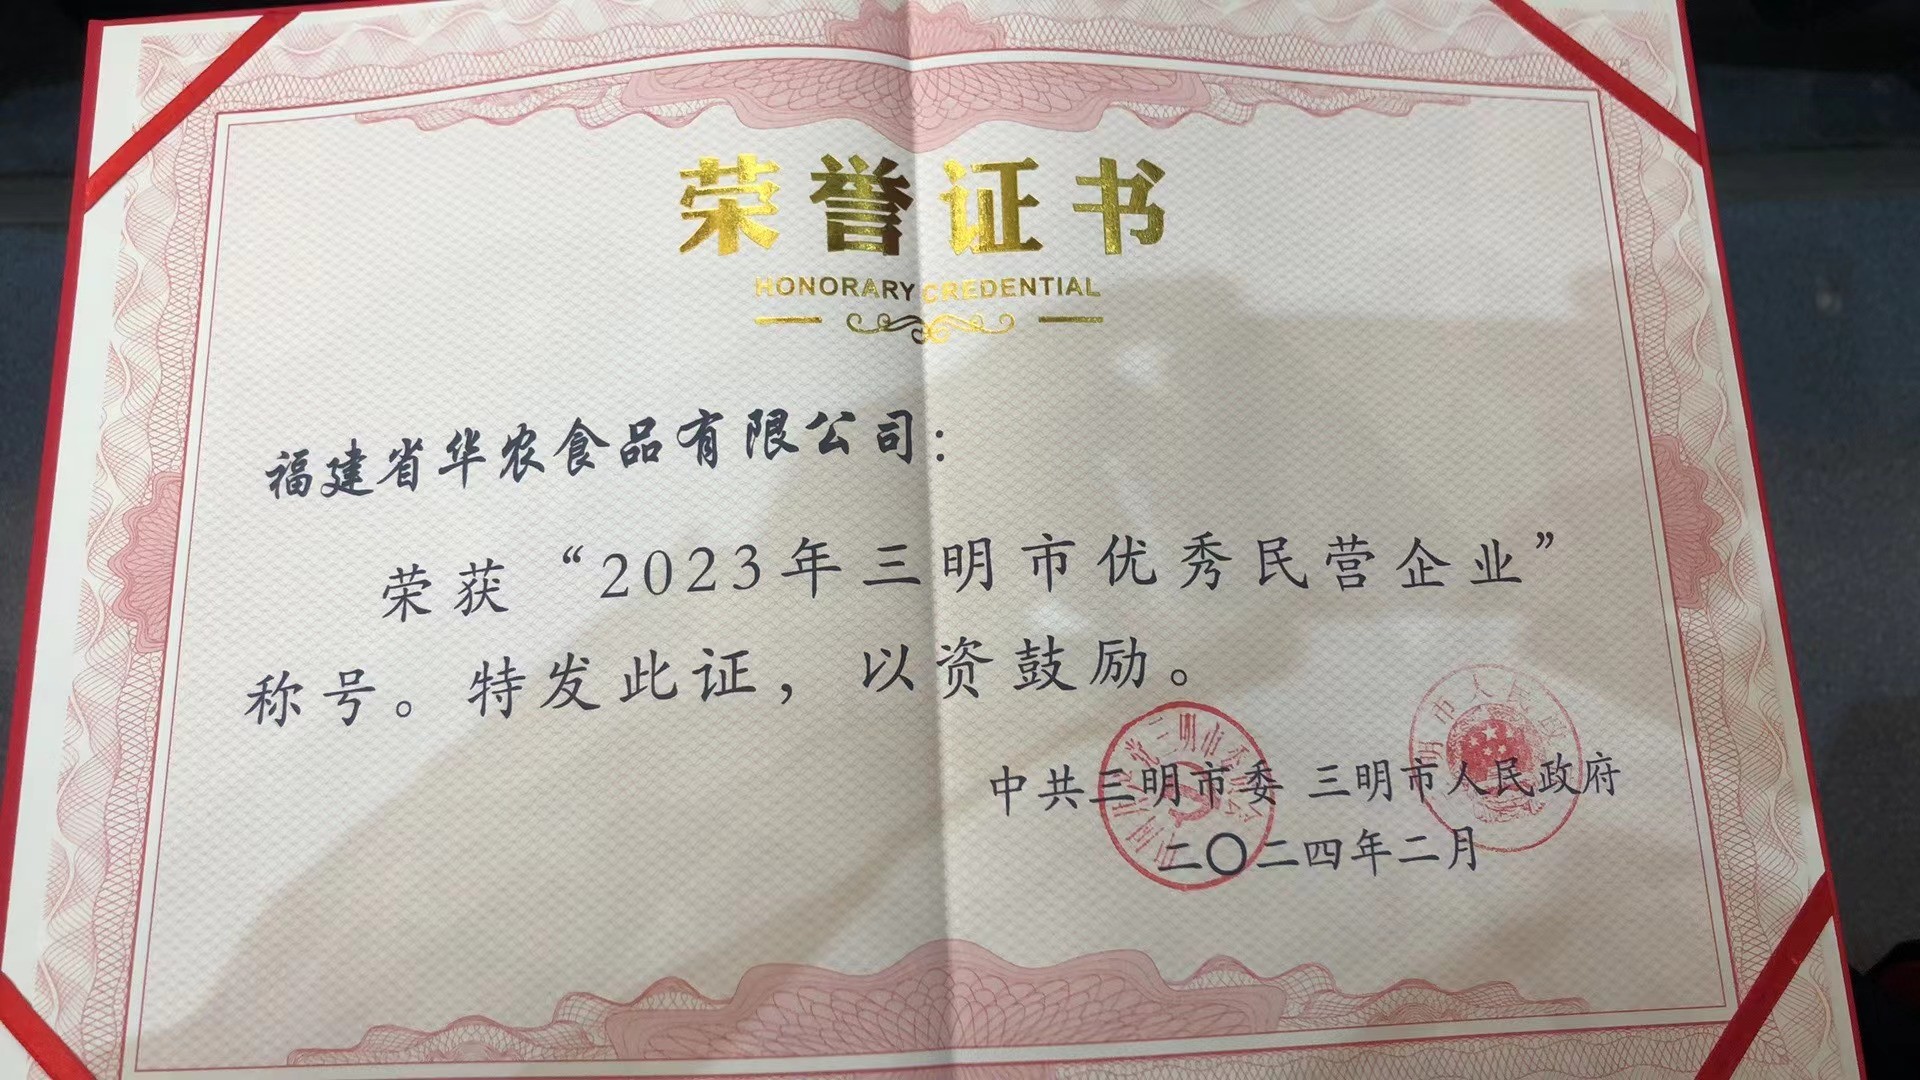 荣誉证书
HONORARY CREDENTIAL
福建省华农食品有限公司：
荣获“2023年三明市优秀民营企业”
称号。特发此证，以资鼓励。
中共三明市委 三明市人民政府
二〇二四年二月